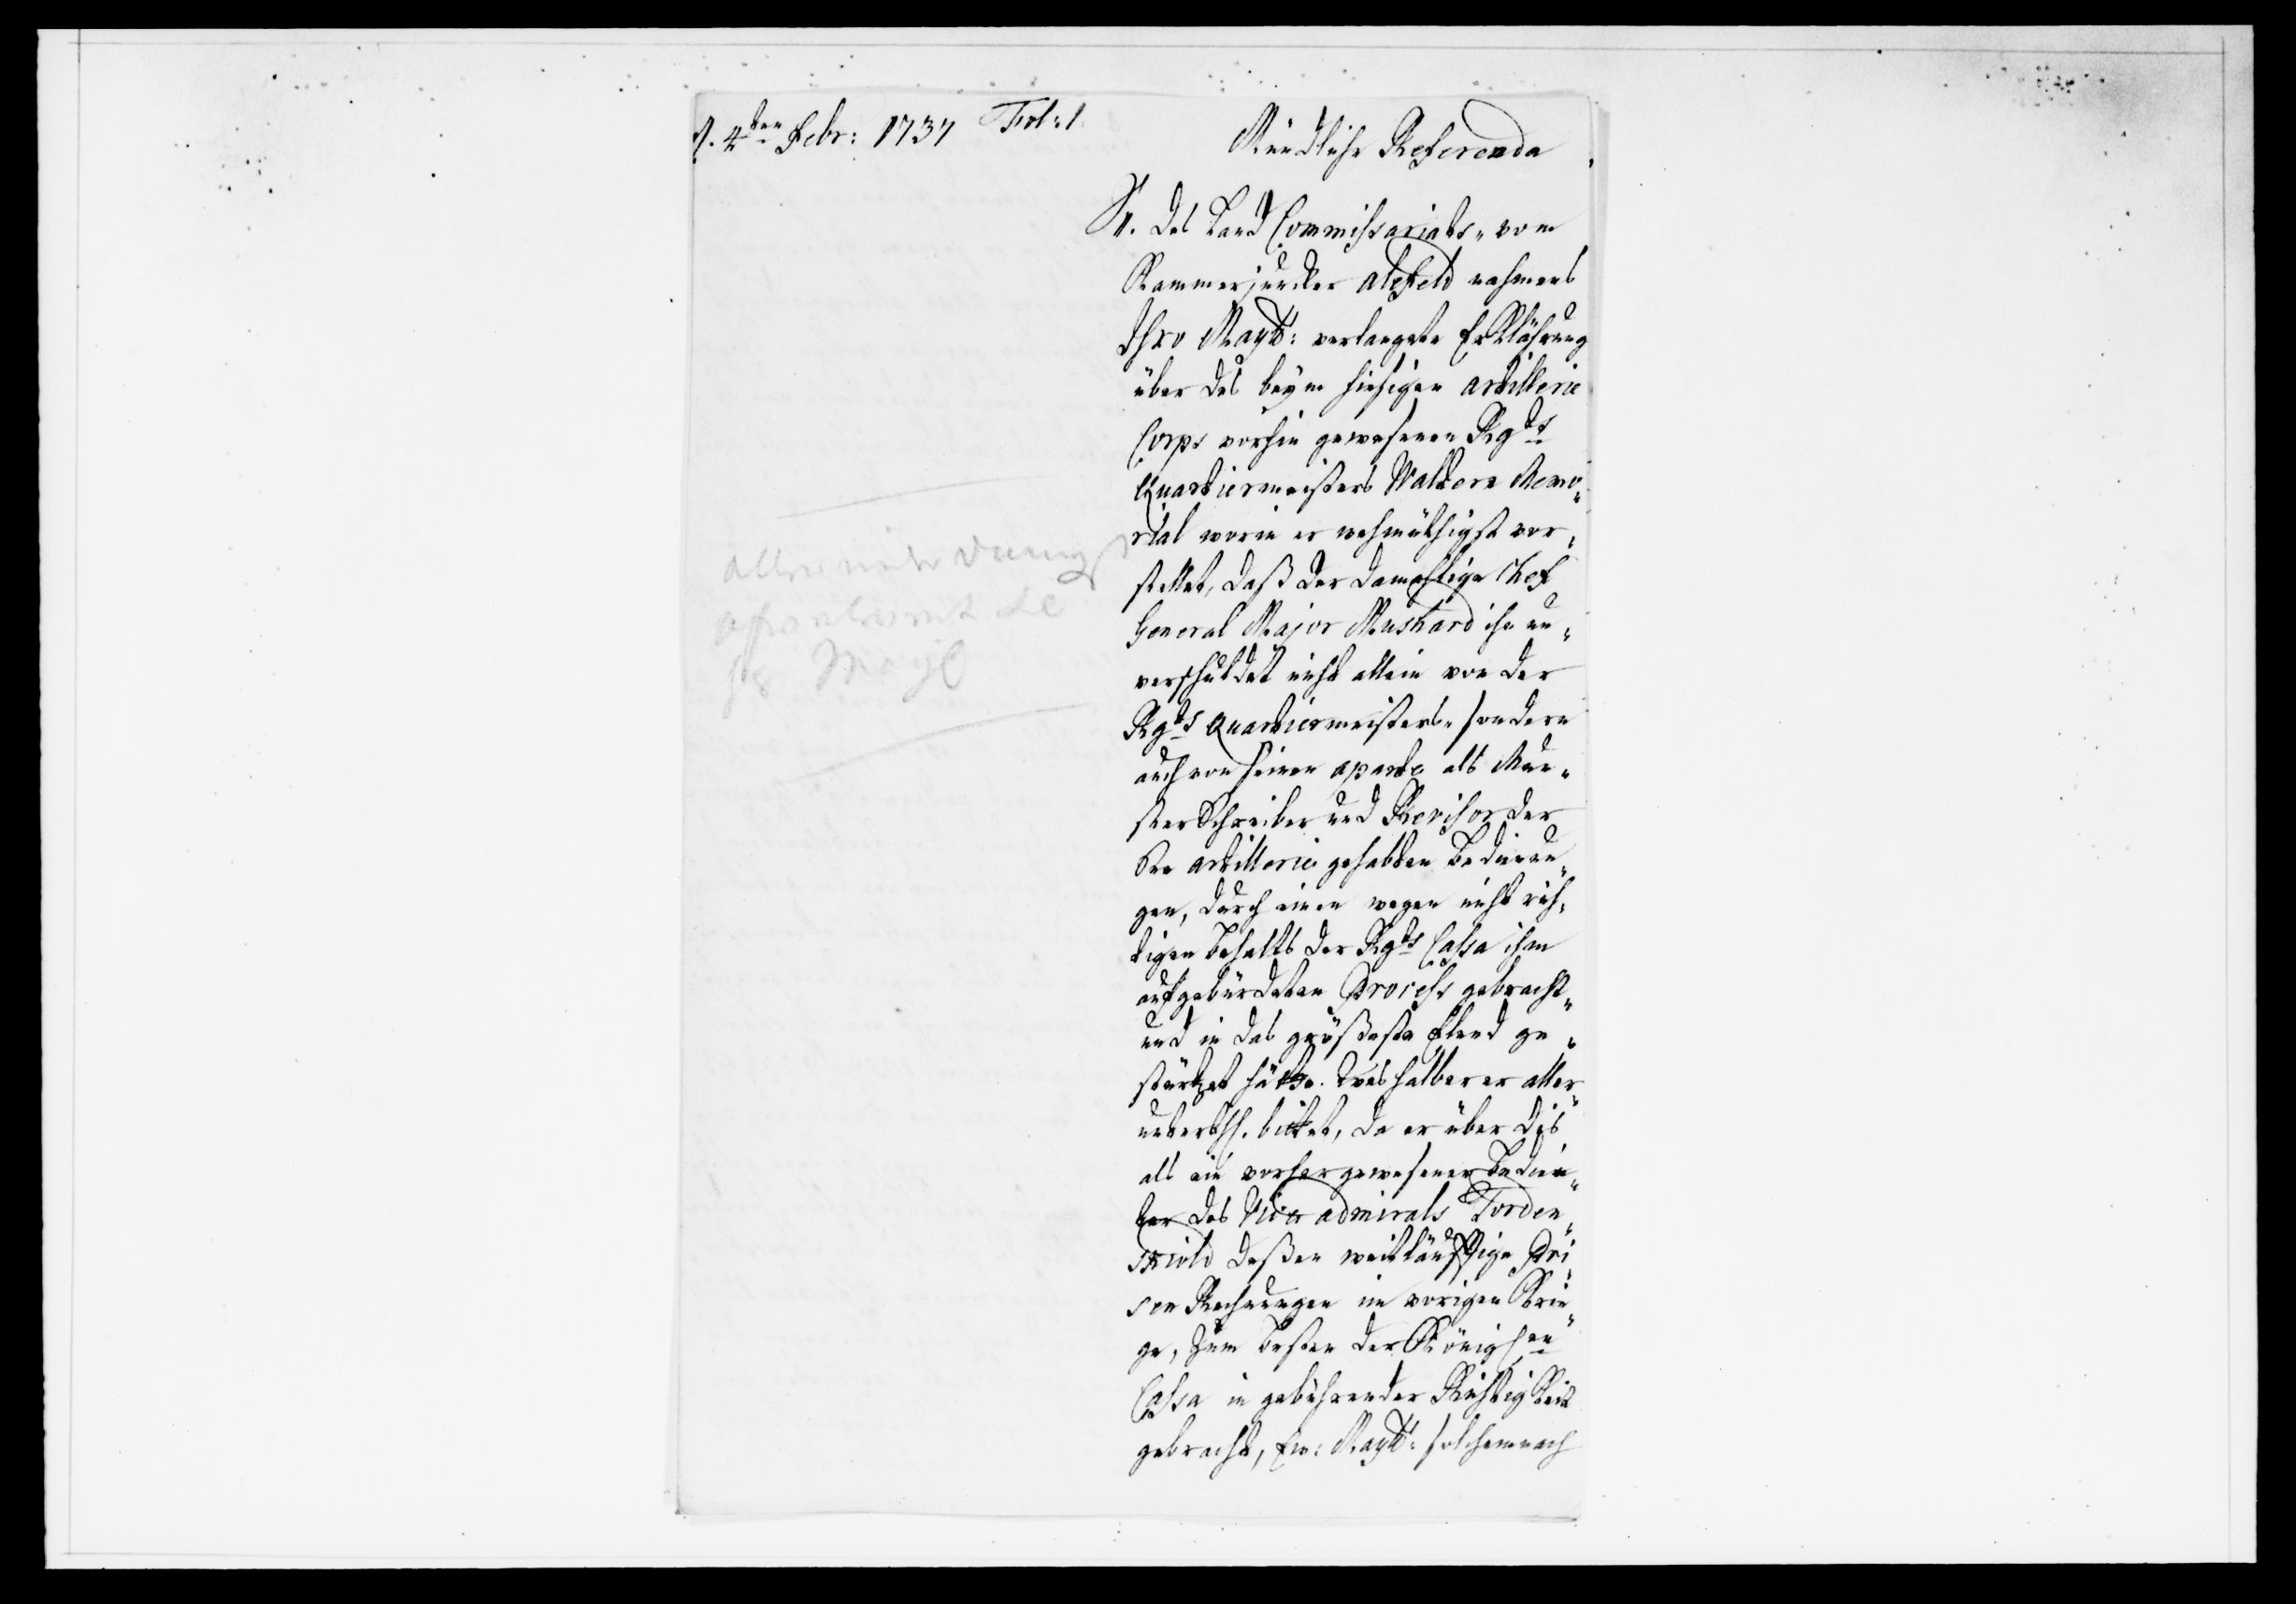 d. 4ten Febr: 1737 Fol: 1.
Mündliche Referenda
1. Des Land Commissariats, vom
Kammerjuncker alefeld nahmens
Ihro Maytt: verlangte Erklährung
über des beym hiesigen artillerie
Corps vorhin gewesenen Rgts
Quartiermeisters Waltern Memo„
rial worin er wehmüthigst vor„
stellet, daß der damahlige Chef
General Major Mushard ihn un„
verschuldet nicht allein von der
Rgts Quartiermeisters„ sondern
auch von seinen aparte als Mun„
ster Schreiber und Revisor der
See artillerie gehabten Bedienun„
gen, durch einen wegen nicht rich„
tigen Behalts der Rgts Cassa ihm
aufgebürdeten Process gebracht„
und in das größeste Elend ge„
stürtzet hätte. Weshalber er aller„
unterthl. bittet, da er über dis
als ein vorher gewesener Bedien„
ter des Vice admirals Torden„
skiold deßen weitläufftige Pri„
sen Rechnungen im vorigen Krie„
ge, zum besten der Königlen
Cassa in gebührender Richtigkeit
gebracht, Ew: Maytt: solchemnach
allerunterthänigst
Mayt